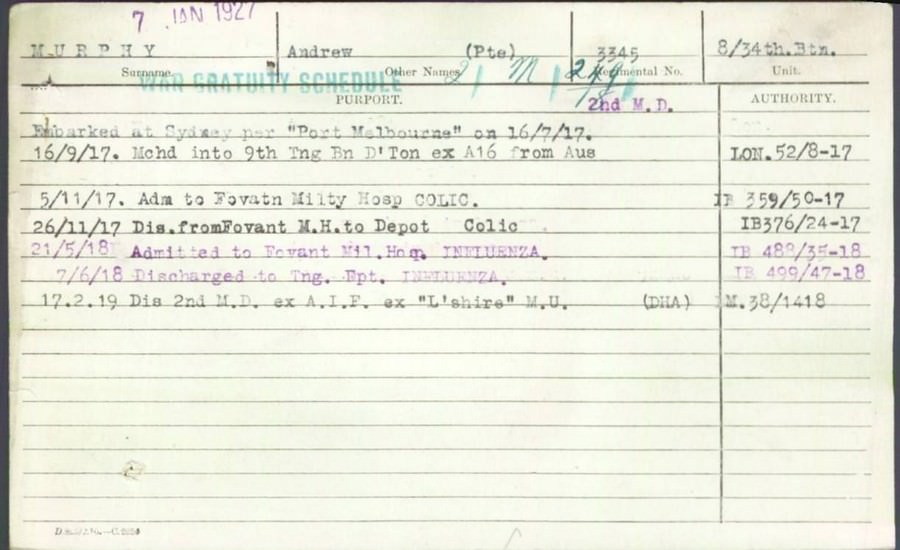 7 JAN 1927
MURPHY Andrew (Pte) 3345 8/34th.Btn.
Surname. Other Names. Regimental No. Unit.
WAR GRATUITY SCHEDULE
PURPORT. 2nd M.D. AUTHORITY.
Embarked at Sydney per "Port Melbourne" on 16/7/17.
16/9/17. Mchd into 9th Tng Bn D'Ton ex A16 from Aus LON.52/8-17
5/11/17. Adm to Fovatn Milty Hosp COLIC. IB 359/50-17
26/11/17 Dis.fromFovant M.H.to Depot Colic IB376/24-17
21/5/18 Admitted to Fovant Mil.Hosp. INFLUENZA. IB 488/35-18
7/6/18 Discharged to Tng. Ept. INFLUENZA. IB 499/47-18
17.2.19 Dis 2nd M.D. ex A.I.F. ex "L'shire" M.U. (DHA) M.38/1418